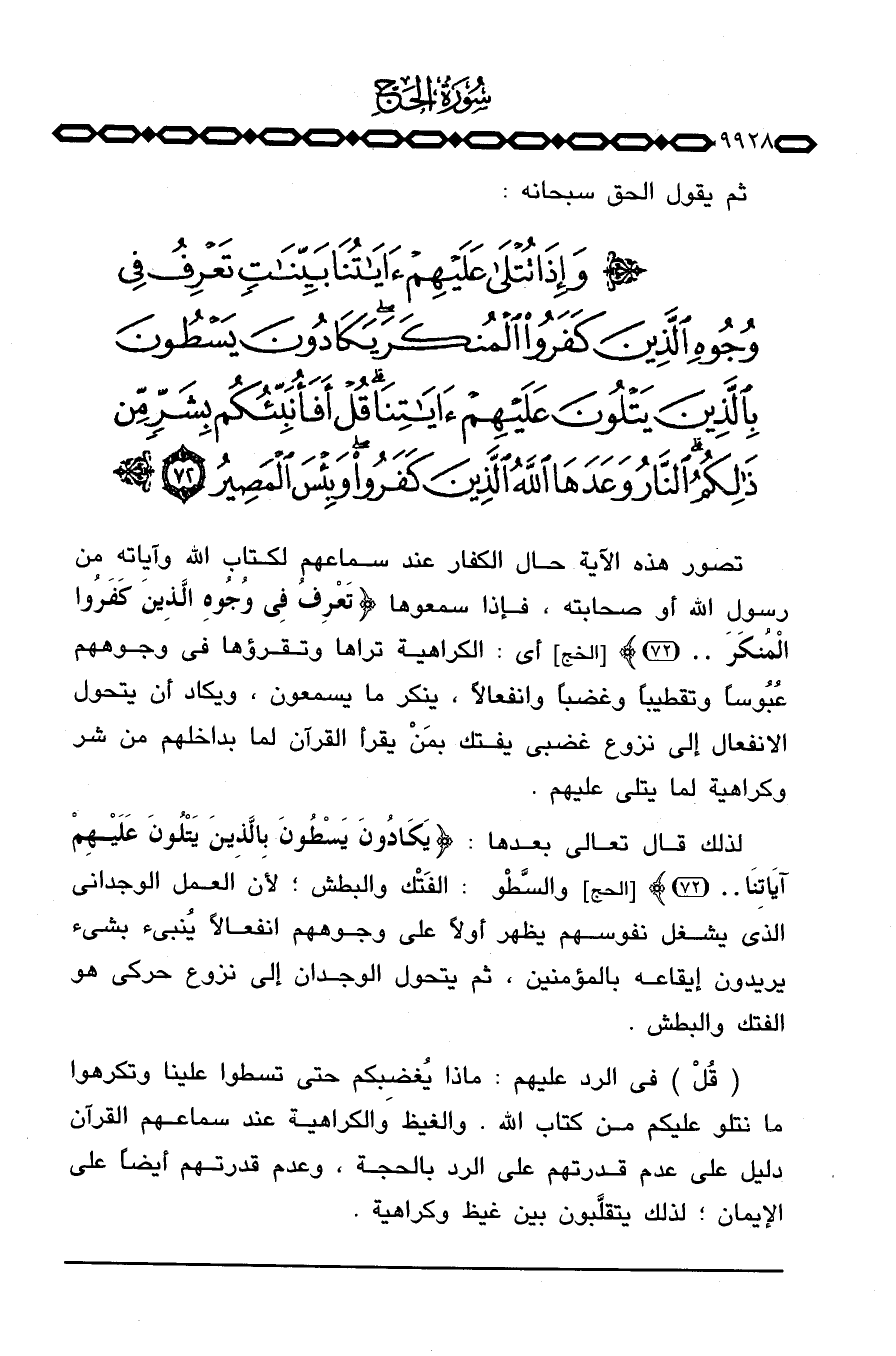 سُورَةُ الحَجّ
٩٩٢٨
ثم يقول الحق سبحانه :
وَإِذَا تُتْلَىٰ عَلَيْهِمْ ءَايَٰتُنَا بَيِّنَٰتٍ تَعْرِفُ فِى
وُجُوهِ ٱلَّذِينَ كَفَرُوا۟ ٱلْمُنكَرَ ۖ يَكَادُونَ يَسْطُونَ
بِٱلَّذِينَ يَتْلُونَ عَلَيْهِمْ ءَايَٰتِنَا ۗ قُلْ أَفَأُنَبِّئُكُم بِشَرٍّ مِّن
ذَٰلِكُمُ ۗ ٱلنَّارُ وَعَدَهَا ٱللَّهُ ٱلَّذِينَ كَفَرُوا۟ ۖ وَبِئْسَ ٱلْمَصِيرُ ٧٢
تصور هذه الآية حال الكفار عند سماعهم لكتاب الله وآياته من
رسول الله أو صحابته ، فإذا سمعوها ﴿ تَعْرِفُ فِى وُجُوهِ الَّذِينَ كَفَرُوا
الْمُنكَرَ .. (٧٢) ﴾ [الخج] أى : الكراهية تراها وتقرؤها فى وجوههم
عُبُوساً وتقطيباً وغضباً وانفعالاً ، ينكر ما يسمعون ، ويكاد أن يتحول
الانفعال إلى نزوع غضبى يفتك بمَنْ يقرأ القرآن لما بداخلهم من شر
وكراهية لما يتلى عليهم .
لذلك قال تعالى بعدها : ﴿ يَكَادُونَ يَسْطُونَ بِالَّذِينَ يَتْلُونَ عَلَيْهِمْ
آيَاتِنَا .. (٧٢) ﴾ [الحج] والسَّطْو : الفَتْك والبطش ؛ لأن العمل الوجدانى
الذى يشغل نفوسهم يظهر أولاً على وجوههم انفعالاً يُنبىء بشىء
يريدون إيقاعه بالمؤمنين ، ثم يتحول الوجدان إلى نزوع حركى هو
الفتك والبطش .
( قُلْ ) فى الرد عليهم : ماذا يُغضِبكم حتى تسطوا علينا وتكرهوا
ما نتلو عليكم من كتاب الله . والغيظ والكراهية عند سماعهم القرآن
دليل على عدم قدرتهم على الرد بالحجة ، وعدم قدرتهم أيضاً على
الإيمان ؛ لذلك يتقلَّبون بين غيظ وكراهية .